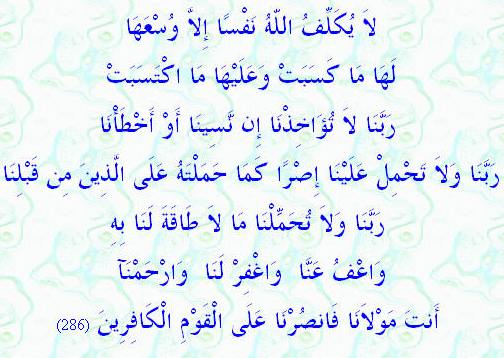 لاَ يُكَلِّفُ اللّهُ نَفْسًا إِلاَّ وُسْعَهَا
لَهَا مَا كَسَبَتْ وَعَلَيْهَا مَا اكْتَسَبَتْ
رَبَّنَا لاَ تُؤَاخِذْنَا إِن نَّسِينَا أَوْ أَخْطَأْنَا
رَبَّنَا وَلاَ تَحْمِلْ عَلَيْنَا إِصْرًا كَمَا حَمَلْتَهُ عَلَى الَّذِينَ مِن قَبْلِنَا
رَبَّنَا وَلاَ تُحَمِّلْنَا مَا لاَ طَاقَةَ لَنَا بِهِ
وَاعْفُ عَنَّا وَاغْفِرْ لَنَا وَارْحَمْنَآ
أَنتَ مَوْلاَنَا فَانصُرْنَا عَلَى الْقَوْمِ الْكَافِرِينَ (286)